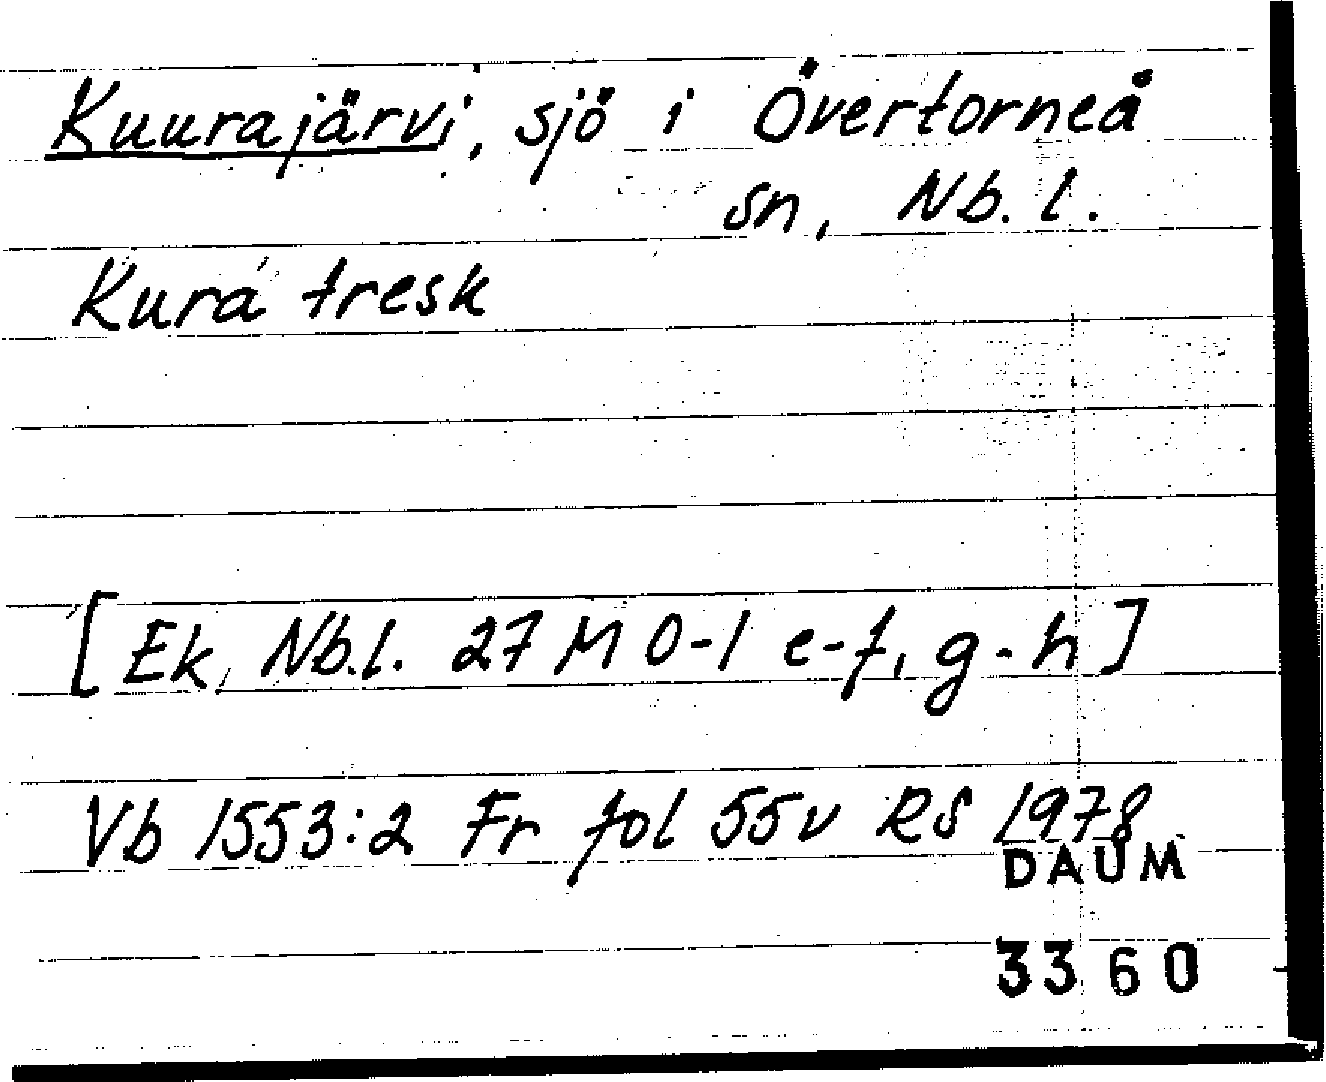 Kuurajärvi, sjö i Övertorneå
sn, Nb. l.
Kurá tresk
[Ek, Nb.l. 27 M 0-1 e-f, g-h]
Vb 1553:2 Fr fol 55v RS 1978
DAUM
3360